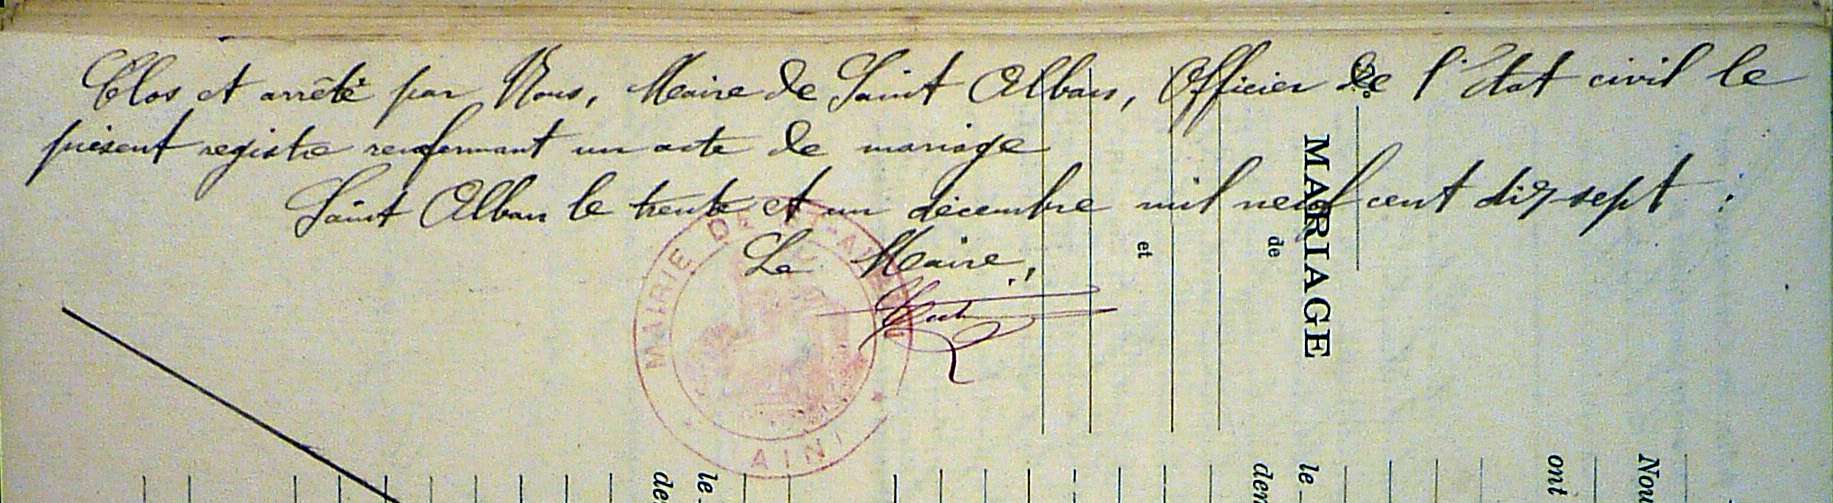 Clos et arrêté par Nous, Maire de Saint Alban, Officier de l'Etat civil le
présent registre renfermant un acte de mariage
Saint Alban le trente et un décembre mil neuf cent dix-sept :
Le Maire,
MAIRIE DE ST-ALBAN
AIN
N°
MARIAGE
de
et
le
de
Nou
ont
le
dem